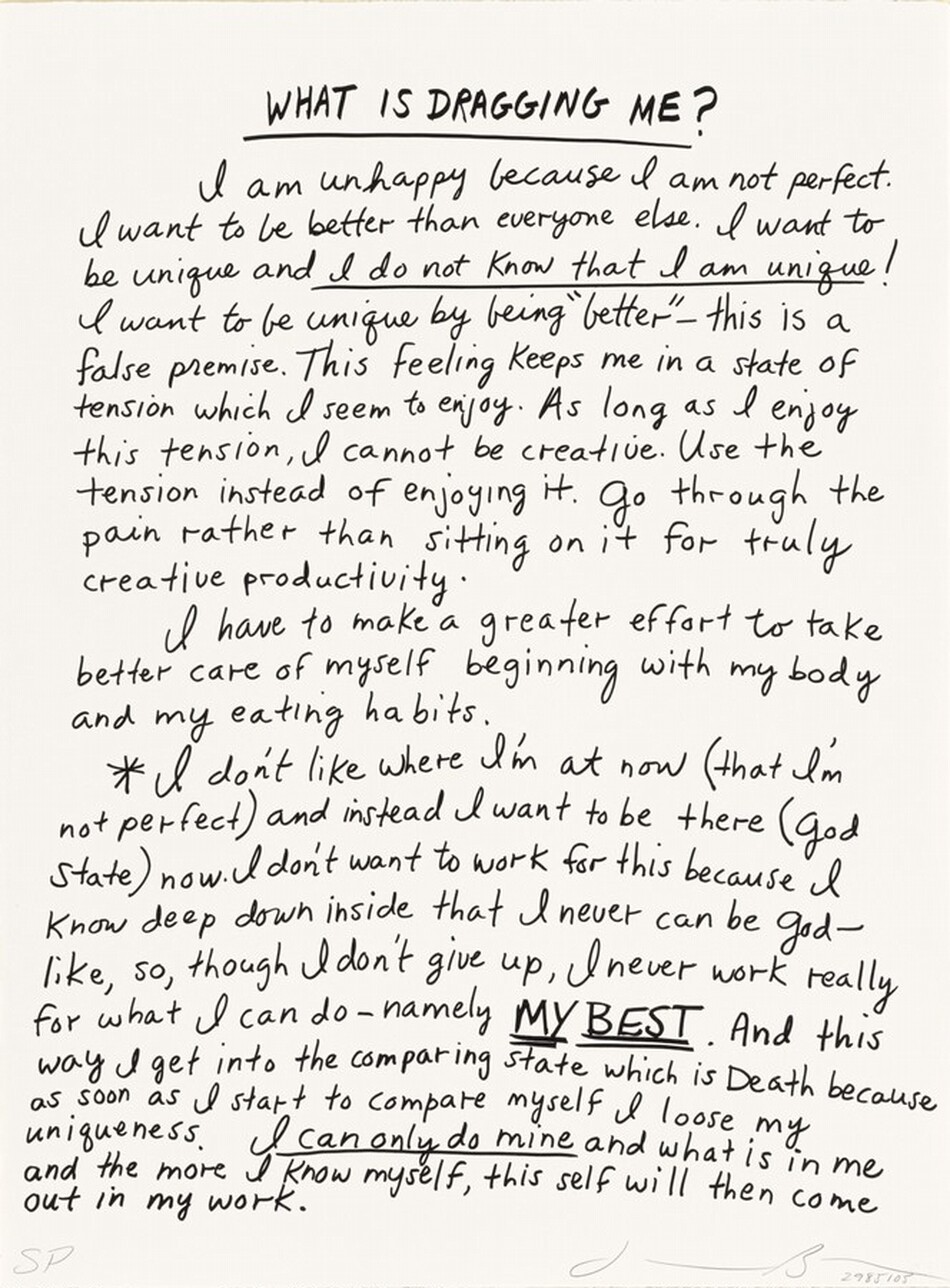 WHAT IS DRAGGING ME?
I am unhappy because I am not perfect.
I want to be better than everyone else. I want to
be unique and I do not know that I am unique!
I want to be unique by being "better" – this is a
false premise. This feeling keeps me in a state of
tension which I seem to enjoy. As long as I enjoy
this tension, I cannot be creative. Use the
tension instead of enjoying it. Go through the
pain rather than sitting on it for truly
creative productivity.
I have to make a greater effort to take
better care of myself beginning with my body
and my eating habits.
* I don't like where I'm at now (that I'm
not perfect) and instead I want to be there (God
State) now. I don't want to work for this because I
know deep down inside that I never can be God–
like, so, though I don't give up, I never work really
for what I can do – namely MY BEST. And this
way I get into the comparing state which is Death because
as soon as I start to compare myself I loose my
uniqueness. I can only do mine and what is in me
and the more I know myself, this self will then come
out in my work.
SP
2985105